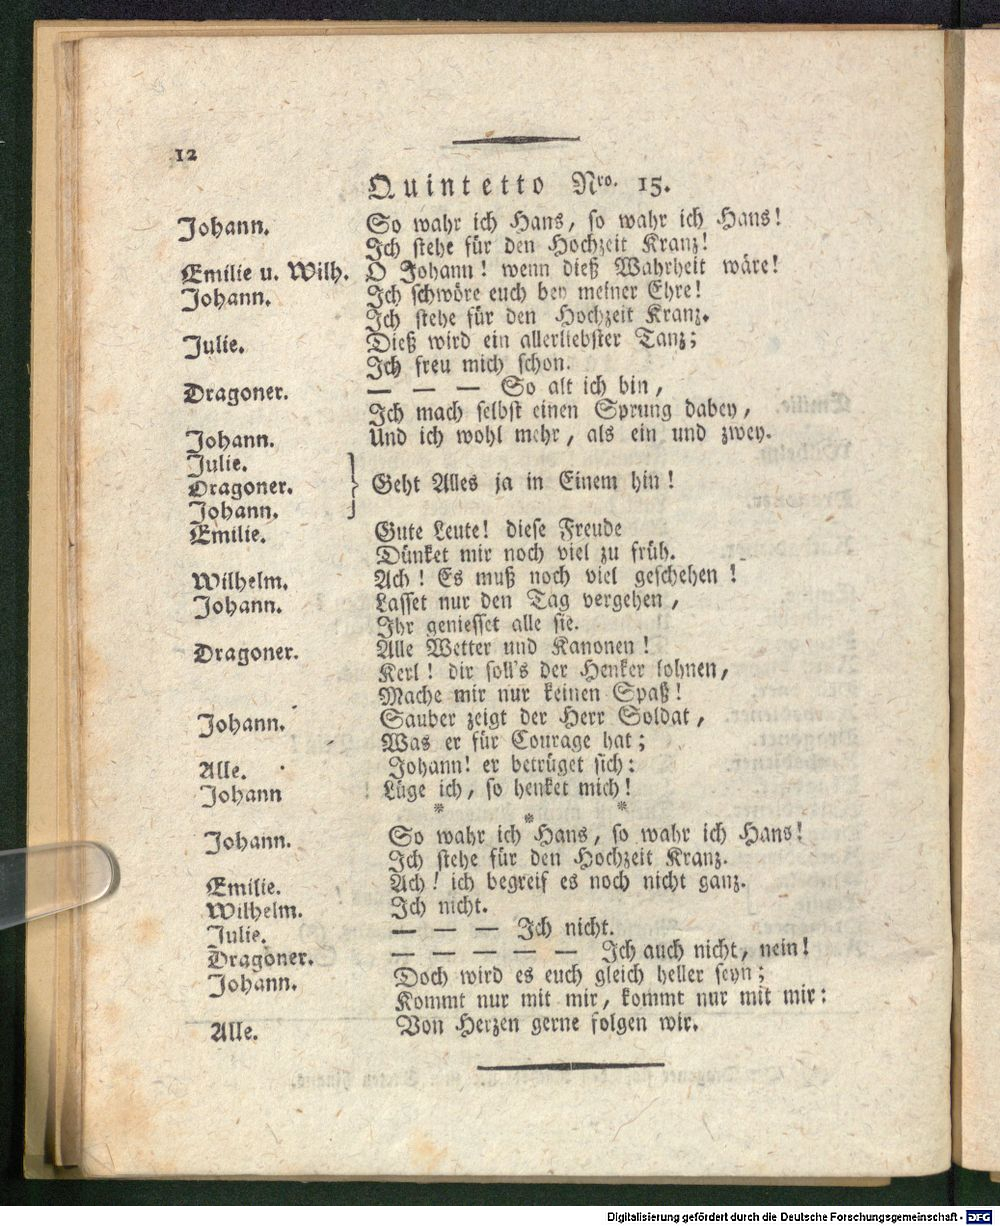 12
Quintetto Nro. 15.
Johann. So wahr ich Hans, so wahr ich Hans!
Ich stehe für den Hochzeit Kranz!
Emilie u. Wilh. O Johann! wenn dieß Wahrheit wäre!
Johann. Ich schwöre euch bey meiner Ehre!
Ich stehe für den Hochzeit Kranz.
Julie. Dieß wird ein allerliebster Tanz;
Ich freu mich schon.
Dragoner. — — — So alt ich bin,
Ich mach selbst einen Sprung dabey,
Johann. Und ich wohl mehr, als ein und zwey.
Julie.
Dragoner. } Geht Alles ja in Einem hin!
Johann.
Emilie. Gute Leute! diese Freude
Dünket mir noch viel zu früh.
Wilhelm. Ach! Es muß noch viel geschehen!
Johann. Lasset nur den Tag vergehen,
Ihr geniesset alle sie.
Dragoner. Alle Wetter und Kanonen!
Kerl! dir soll's der Henker lohnen,
Mache mir nur keinen Spaß!
Johann. Sauber zeigt der Herr Soldat,
Was er für Courage hat;
Alle. Johann! er betrüget sich:
Johann ! Lüge ich, so henket mich!
* * *
Johann. So wahr ich Hans, so wahr ich Hans!
Ich stehe für den Hochzeit Kranz.
Emilie. Ach! ich begreif es noch nicht ganz.
Wilhelm. Ich nicht.
Julie. — — — Ich nicht.
Dragoner. — — — — — Ich auch nicht, nein!
Johann. Doch wird es euch gleich heller seyn;
Kommt nur mit mir, kommt nur mit mir:
Alle. Von Herzen gerne folgen wir.
Digitalisierung gefördert durch die Deutsche Forschungsgemeinschaft - DFG